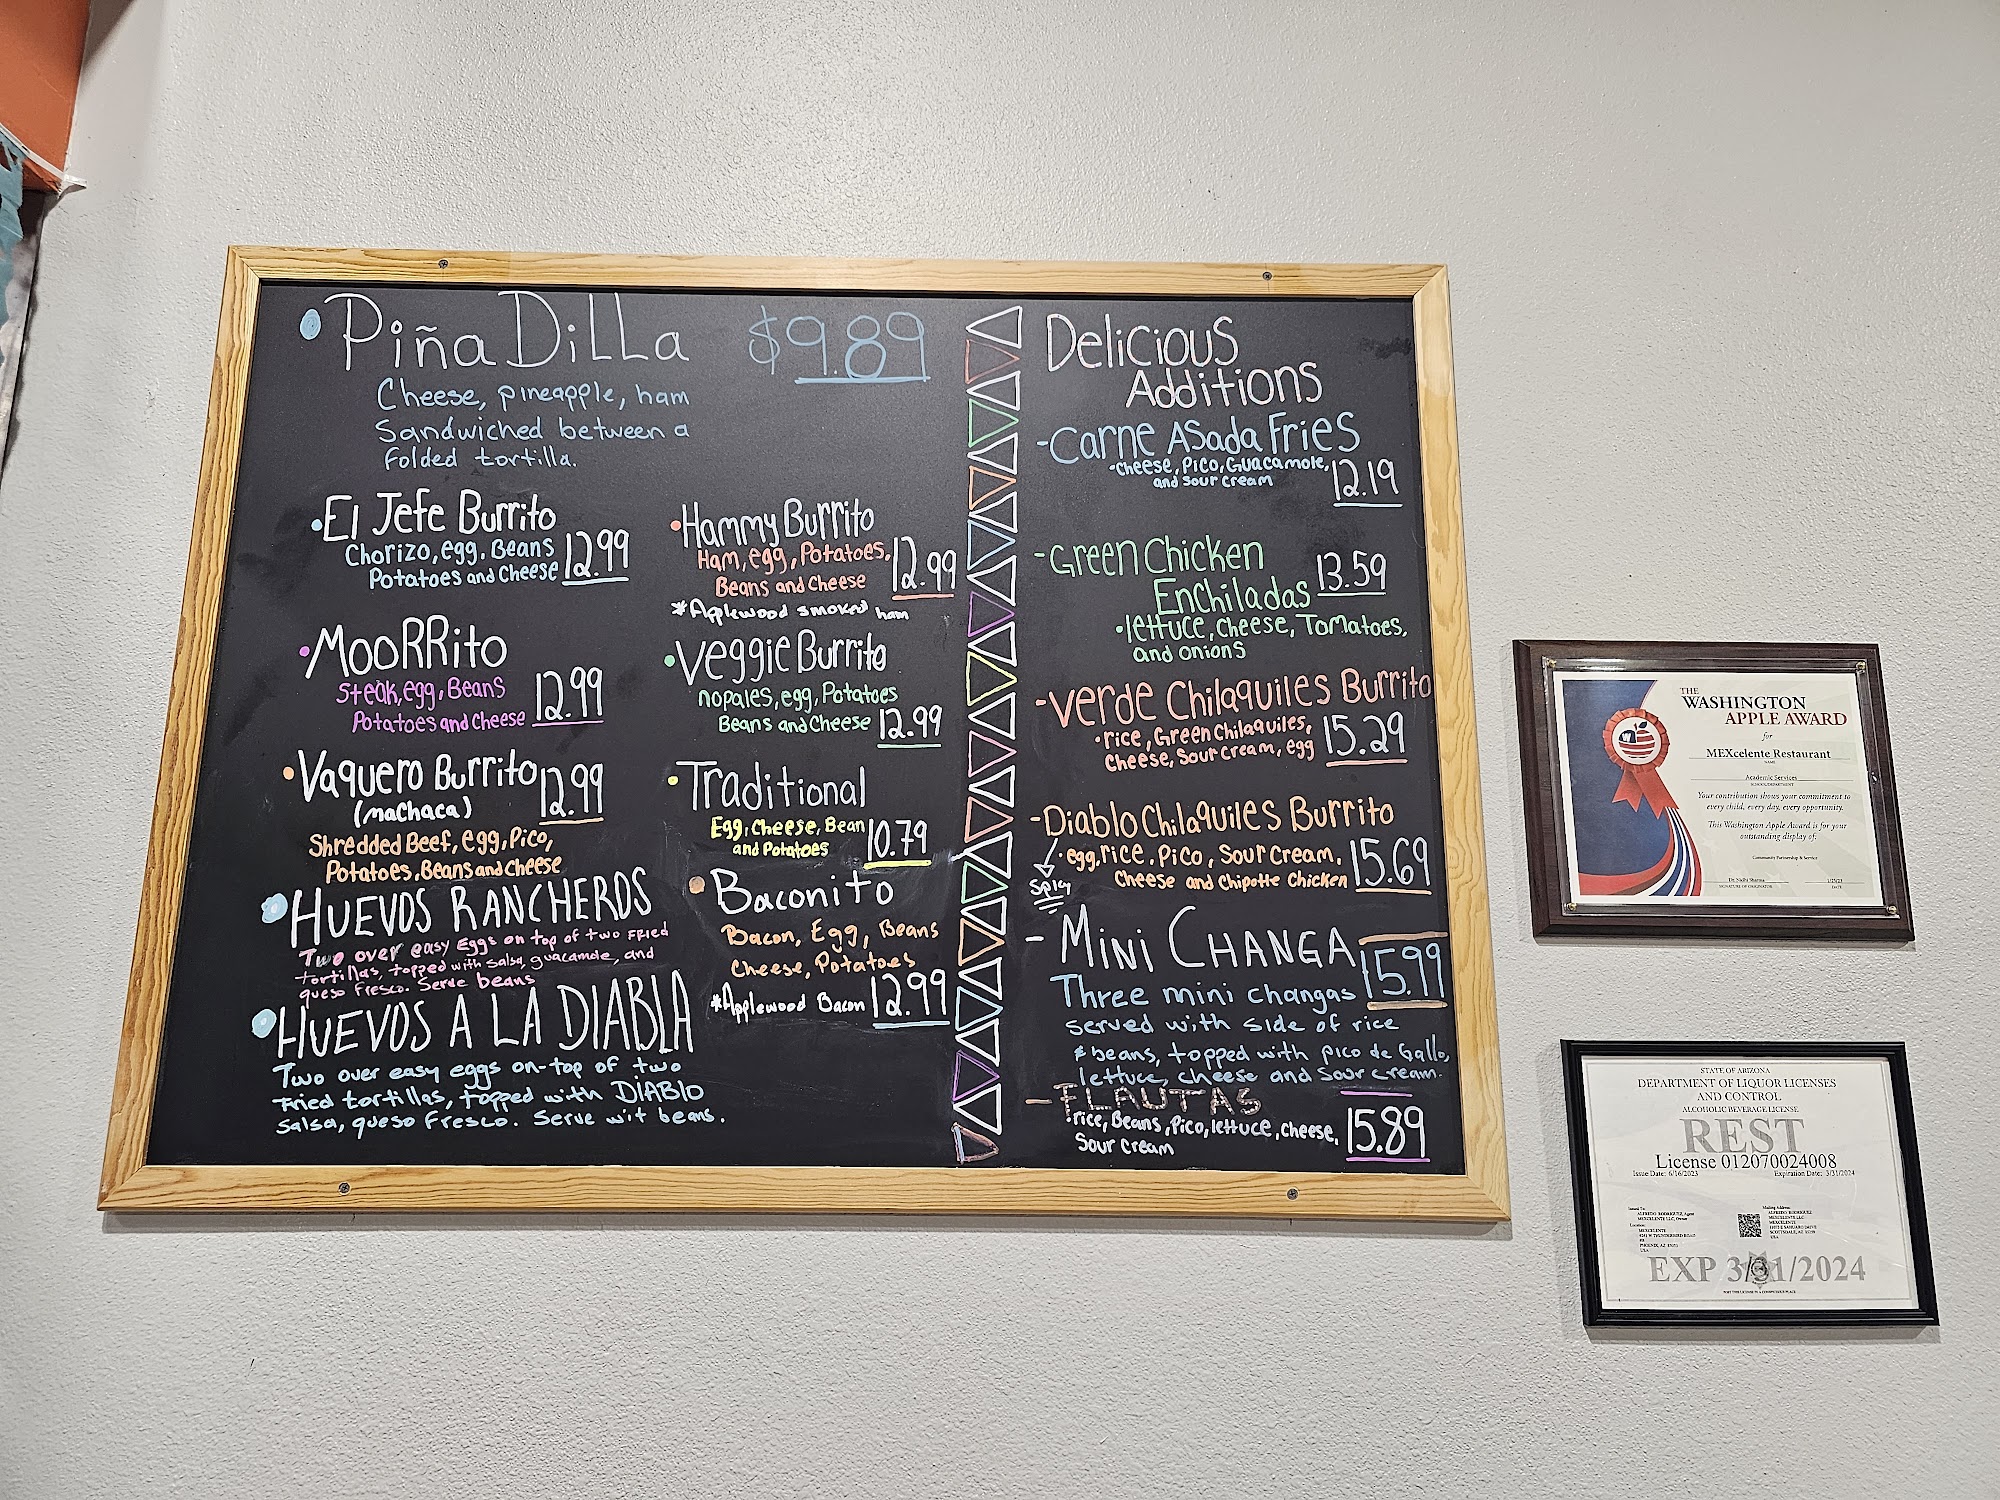 PiñaDiLLa $9.89
Cheese, pineapple, ham
Sandwiched between a
folded tortilla.
El Jefe Burrito
Chorizo, egg, Beans
Potatoes and Cheese 12.99
MooRRito
Steak, egg, Beans
Potatoes and Cheese 12.99
Vaquero Burrito 12.99
(machaca)
Shredded Beef, egg, Pico,
Potatoes, Beans and Cheese
HUEVOS RANCHEROS
Two over easy Eggs on top of two FRIED
tortillas, topped with salsa, guacamole, and
queso fresco. Serve beans
HUEVOS A LA DIABLA
Two over easy eggs on-top of two
Fried tortillas, topped with DIABLO
Salsa, queso Fresco. Serve wit beans.
Hammy Burrito
Ham, egg, Potatoes,
Beans and Cheese 12.99
*Applewood smoked ham
Veggie Burrito
nopales, egg, Potatoes
Beans and Cheese 12.99
Traditional
Egg, Cheese, Bean
and Potatoes 10.79
Baconito
Bacon, Egg, Beans
Cheese, Potatoes
*Applewood Bacon 12.99
Delicious
Additions
-Carne Asada Fries
•Cheese, Pico, Guacamole,
and Sour Cream 12.19
-Green Chicken
Enchiladas 13.59
•lettuce, cheese, Tomatoes,
and onions
-Verde Chilaquiles Burrito
•rice, Green Chilaquiles,
Cheese, Sour Cream, egg 15.29
-Diablo Chilaquiles Burrito
•egg, rice, Pico, Sour Cream,
Cheese and Chipotle Chicken 15.69
Spicy
-MINI CHANGA 15.99
Three mini changas
served with side of rice
& beans, topped with pico de Gallo,
lettuce, cheese and sour cream.
-FLAUTAS
•rice, Beans, Pico, lettuce, cheese,
Sour Cream 15.89
THE
WASHINGTON
APPLE AWARD
for
MEXcelente Restaurant
NAME
Academic Services
SCHOOL/DEPARTMENT
Your contribution shows your commitment to
every child, every day, every opportunity.
This Washington Apple Award is for your
outstanding display of:
Community Partnership & Service
SIGNATURE OF ORIGINATOR DATE
STATE OF ARIZONA
DEPARTMENT OF LIQUOR LICENSES
AND CONTROL
ALCOHOLIC BEVERAGE LICENSE
REST
License 012070024008
Issue Date: 6/16/2023 Expiration Date: 3/31/2024
Issued To:
ALFREDO RODRIGUEZ, Agent
MEXCELENTE LLC, Owner
Location:
MEXCELENTE
PHOENIX, AZ
USA
Mailing Address:
ALFREDO RODRIGUEZ
MEXCELENTE LLC
MEXCELENTE
USA
EXP 3/31/2024